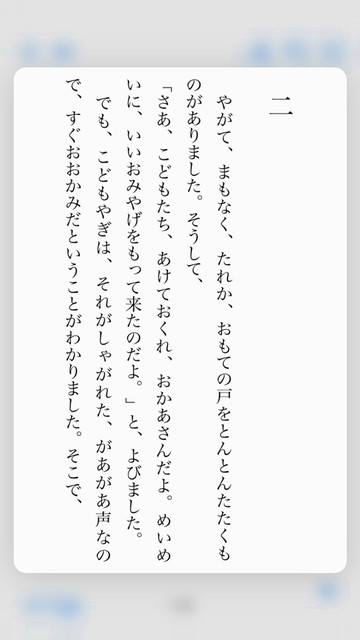 二
やがて、まもなく、たれか、おもての戸をとんとんたたくも
のがありました。そうして、
「さあ、こどもたち、あけておくれ、おかあさんだよ。めいめ
いに、いいおみやげをもって来たのだよ。」と、よびました。
でも、こどもやぎは、それがしゃがれた、があがあ声なの
で、すぐおおかみだということがわかりました。そこで、